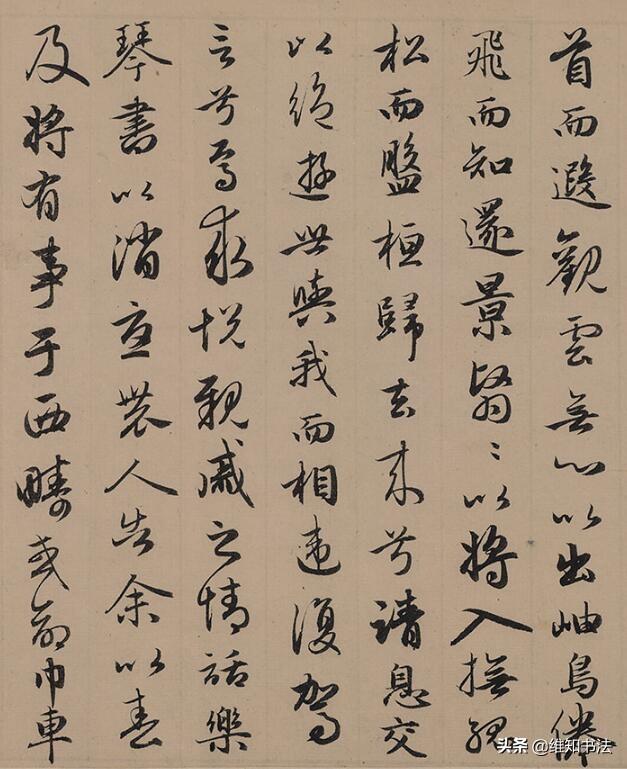 首而遐觀雲無心以出岫鳥倦
飛而知還景翳〻以將入撫孤
松而盤桓歸去来兮請息交
以絕遊世與我而相違復駕
言兮焉求悅親戚之情話樂
琴書以消憂農人告余以春
及將有事于西疇或命巾車
头条 @维知书法